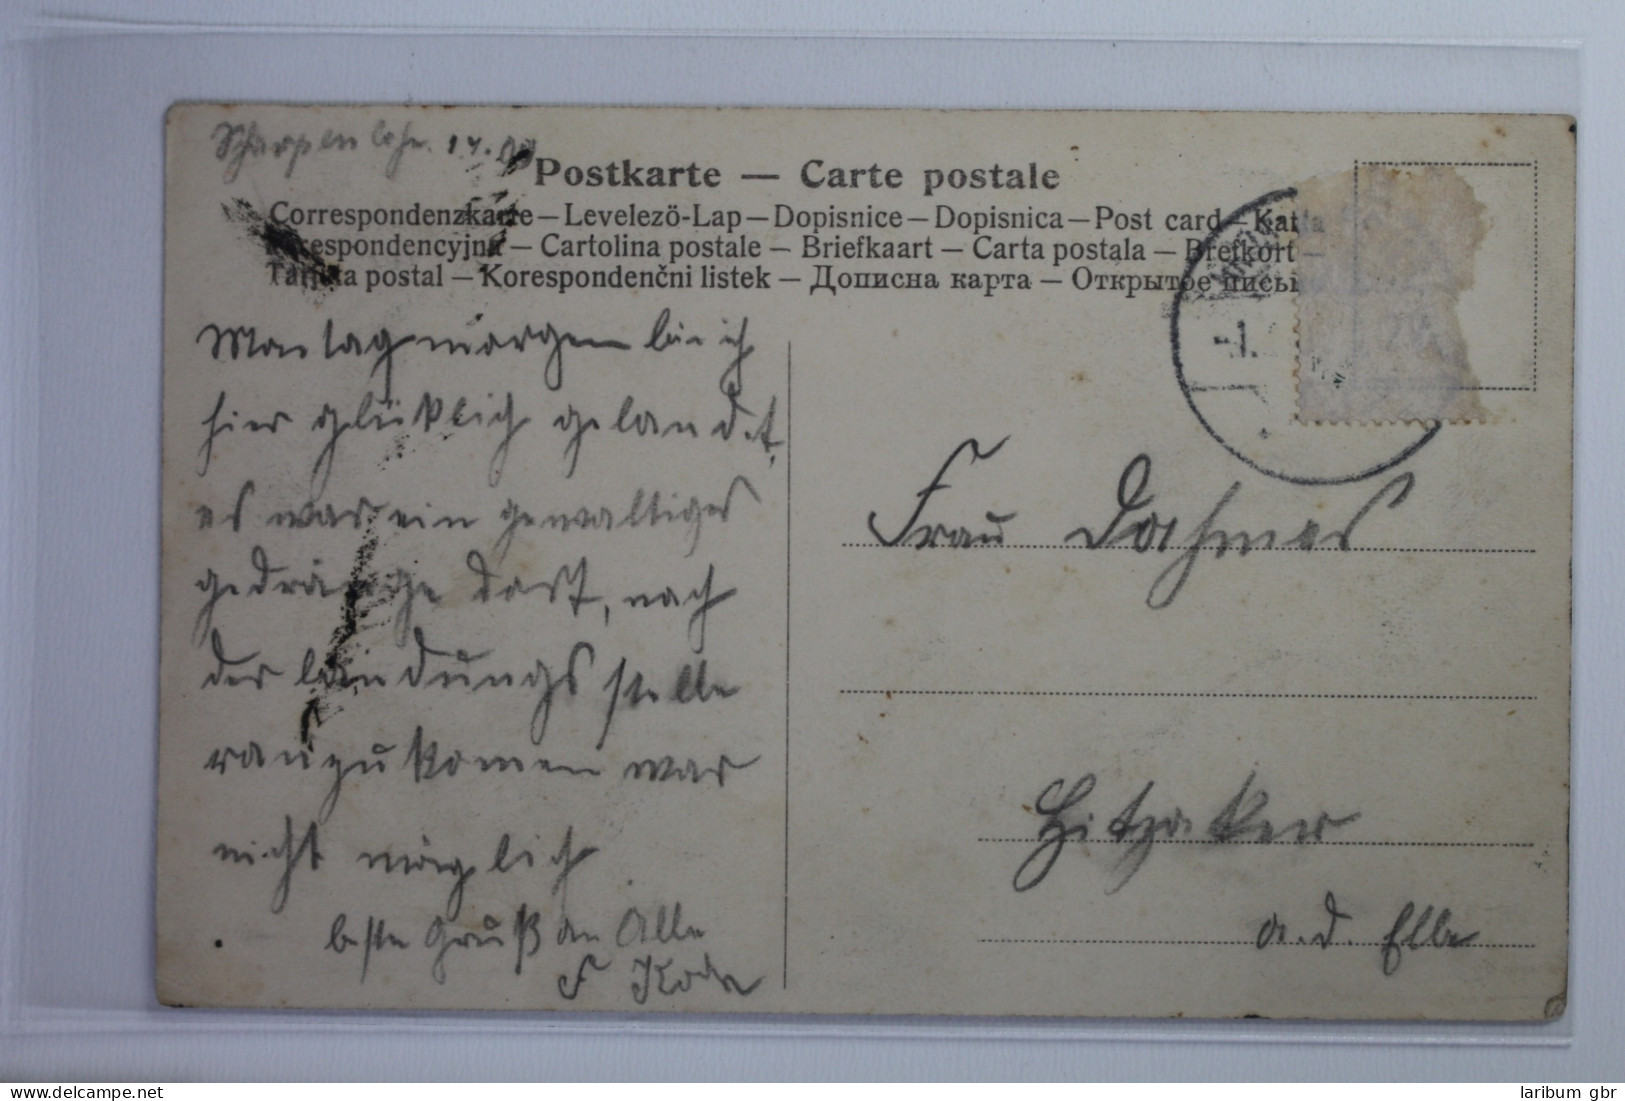 Scharpenlohe. 14.
Postkarte — Carte postale
Correspondenzkarte — Levelezö-Lap — Dopisnice — Dopisnica — Post card — Karta
korespondencyjna — Cartolina postale — Briefkaart — Carta postala — Brefkort —
Tarjeta postal — Korespondenčni listek — Дописна карта — Открытое письм
Montagmorgen bin ich
hier glüklich gelandet,
es war ein gewaltiges
gedränge dort, nach
der landungsstelle
ranzukomen war
nicht möglich
beste Gruß an Alle
F
Frau Dahmes
Hitzaker
a.d. Elbe
laribum gbr